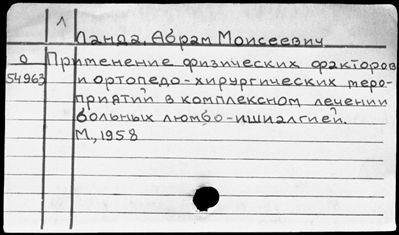 1
Ланда, Абрам Моисеевич
0 Применение физических факторов
54963 и ортопедо-хирургических меро-
приятий в комплексном лечении
больных люмбо-ишиалгией.
М., 1958